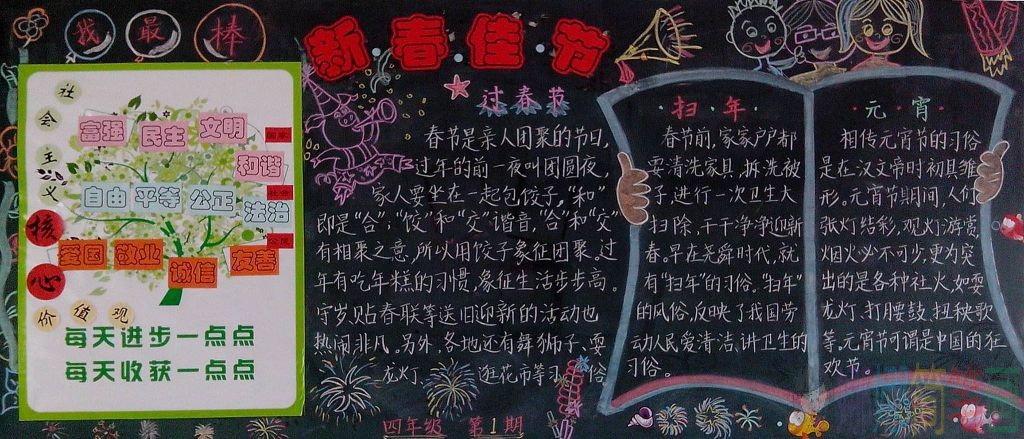 我最棒
新春佳节
社会主义核心价值观
富强 民主 文明
和谐
自由 平等 公正
法治
爱国 敬业
诚信 友善
每天进步一点点
每天收获一点点
过春节
春节是亲人团聚的节日,
过年的前一夜叫团圆夜,
家人要坐在一起包饺子,“和”
即是“合”;“饺”和“交”谐音,“合”和“交”
有相聚之意,所以用饺子象征团聚。过
年有吃年糕的习惯,象征生活步步高。
守岁贴春联等送旧迎新的活动也
热闹非凡。另外,各地还有舞狮子、耍
龙灯、逛花市等习俗
四年级 第1期
扫·年
春节前,家家户户都
要清洗家具,拆洗被
子,进行一次卫生大
扫除,干干净净迎新
春。早在尧舜时代,就
有“扫年”的习俗。“扫年”
的风俗,反映了我国劳
动人民爱清洁、讲卫生的
习俗。
·元·宵·
相传元宵节的习俗
是在汉文帝时初具雏
形。元宵节期间,人们
张灯结彩,观灯游赏,
烟火必不可少,更为突
出的是各种社火,如耍
龙灯、打腰鼓、扭秧歌
等。元宵节可谓是中国的狂
欢节。